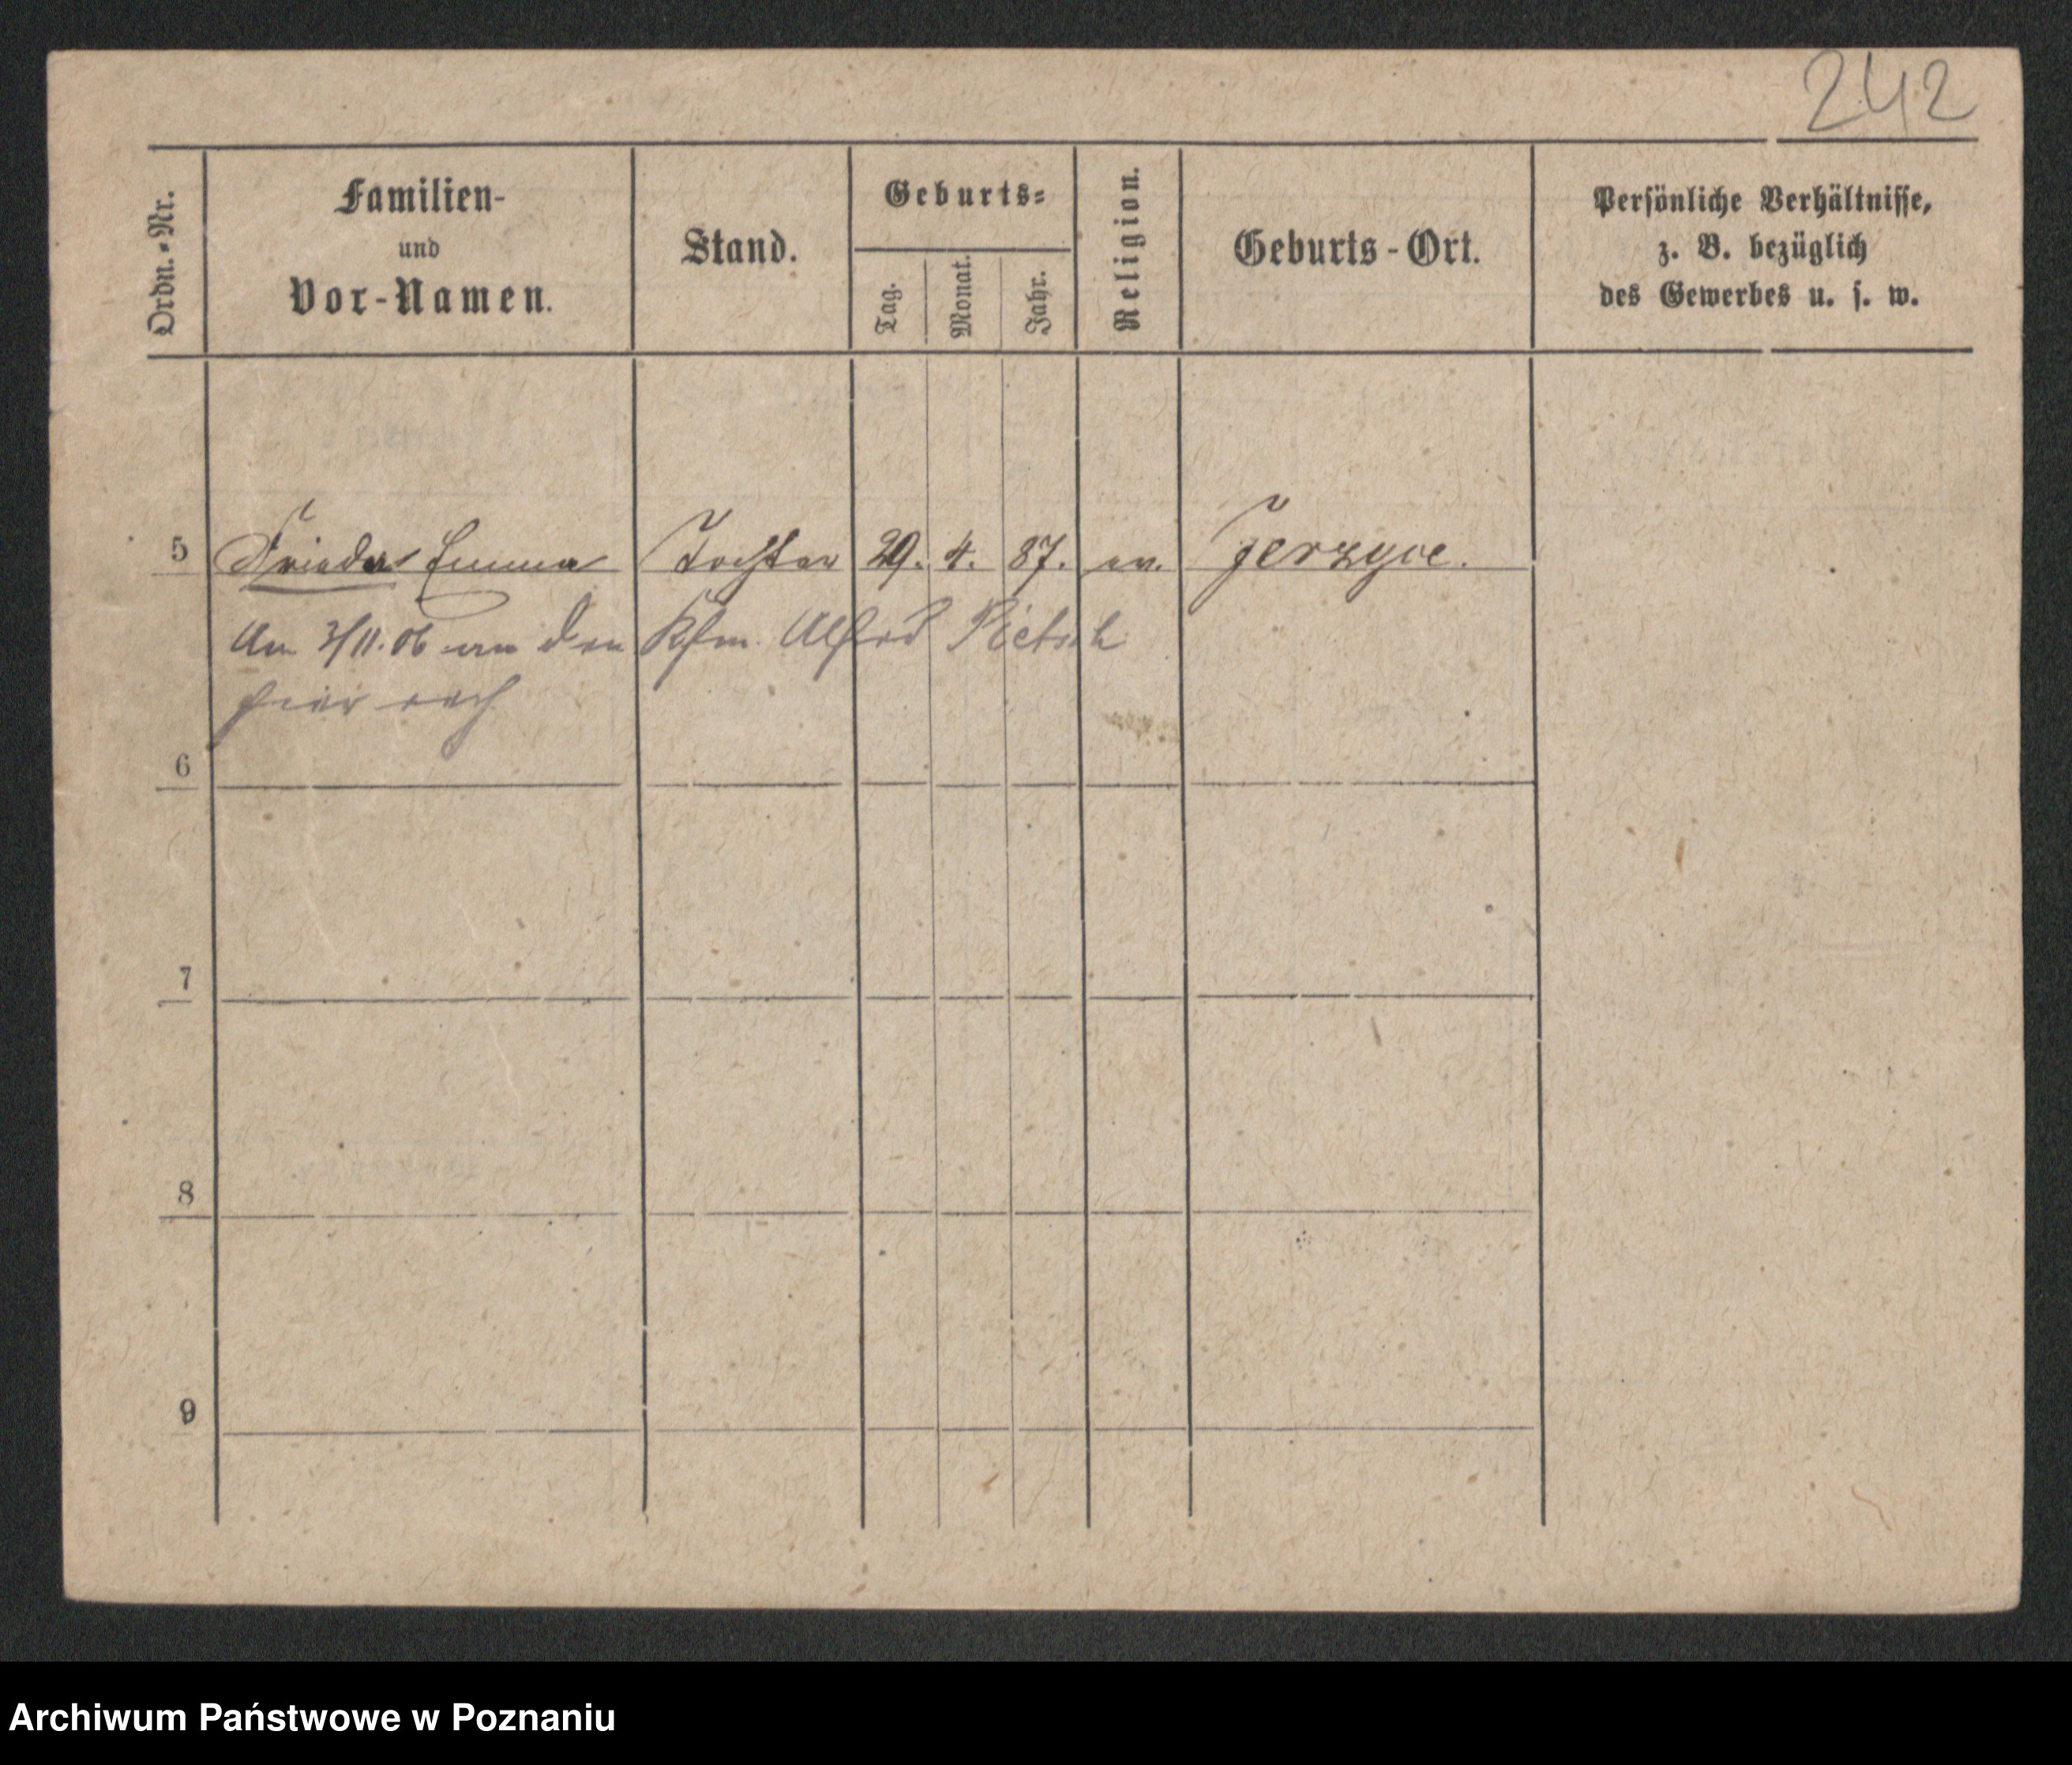 242
Ordn.-Nr.
Familien-
und
Vor-Namen.
Stand.
Geburts-
Tag.
Monat.
Jahr.
Religion.
Geburts-Ort.
Persönliche Verhältnisse,
z. B. bezüglich
des Gewerbes u. s. w.
5 Frieda Emma Tochter 29. 4. 87. ev. Jerzyce.
Am 3/11.06 an den Kfm. Alfred Pietsch
hier verh
6
7
8
9
Archiwum Państwowe w Poznaniu